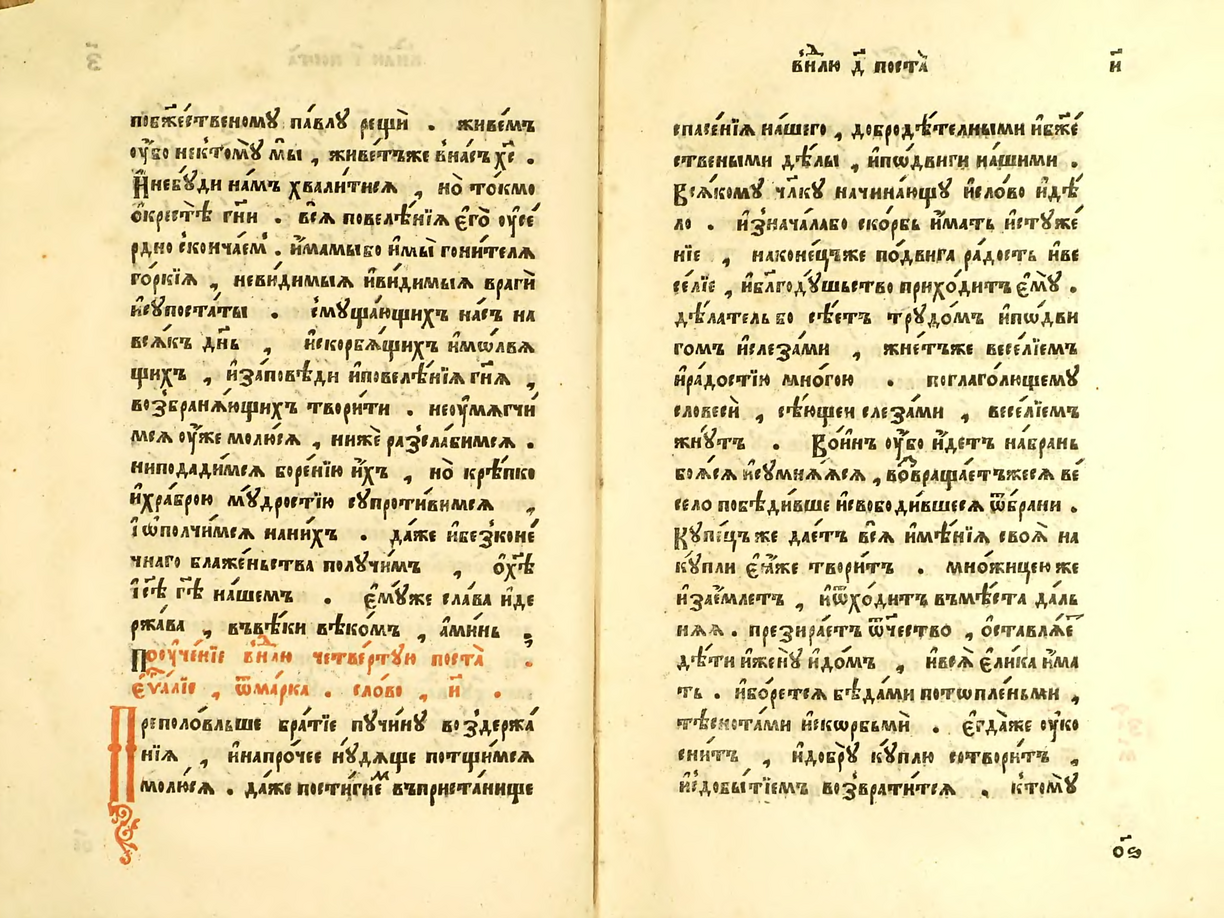 побжⷭ҇е́ственому па́влу рещѝ . живе́мъ
ᲂу҆́бо некꙸто́му мы̀ , живе́тъже в̾на́съ хс҇ .
И҆небу́ди на́мъ хвали́тисѧ , но̀ то́кмо
ѡ҆крⷭ҇тѣ гн҇и . всѧ̀ повелѣ́нїѧ є҆го̀ ᲂу҆се́
рдно скончае́м . и҆́мамыбо и҆мы̀ гони́телѧ
го́ркїѧ , неви́димыѧ и҆ви́димыѧ врагѝ
и҆сꙋпоста́ты . смꙋща́ющихъ на́съ на
всѧ́къ дн҇ь , и҆скорбѧ́щихъ и҆мѡлвѧ́
щихъ , и҆за́повѣди и҆повелѣ́нїѧ гн҇ѧ ,
возбранѧ́ющихъ твори́ти . неᲂу҆мѧгчи́
мсѧ ᲂу҆́же молю́сѧ , нижѐ разсла́бимсѧ .
ниподади́мсѧ боре́нїю и҆́хъ , но̀ крѣ́пко
и҆хра́брою мꙋ́дростїю сꙋпроти́вимсѧ ,
і҆ѡ҆полчи́мсѧ нани́хъ . да́же и҆безконе́
чнаго блаже́ньства полꙋчи́мъ , ѡ҆хⷭ҇ѣ
і҆сⷭ҇ѣ гдⷭ҇ѣ на́шемъ . є҆мꙋ́же сла́ва и҆де
ржа́ва , въвѣ́ки вѣко́мъ , а҆ми́нь .
Поᲂу҆че́нїе в̾нⷣлю четве́ртꙋю поста̀ .
є҆ѵⷢ҇алїе , ѿма́рка . сло́во , и҃ .
Преполо́вльше бра́тїе пꙋчи́нꙋ воздержа́
нїѧ , и҆напро́чее нꙋ́дѧще потщи́мсѧ
молю́сѧ . да́же пости́гнеⷨ въприста́нище
в̾нⷣлю д҃ поста̀
и҃
спасе́нїѧ на́шего , доброде́тельными и҆бж҃е́
ствеными дѣ́лы , и҆по́двиги на́шими .
Всѧ́комꙋ чл҃кꙋ начина́ющꙋ и҆сло́во и҆дѣ́
ло . и҆знача́лабо ско́рбь и҆́мать и҆стꙋже́
нїе , наконе́цъже по́двига ра́дость и҆ве
се́лїе , и҆благодꙋ́шьство прихо́дитъ є҆мꙋ̀ .
дѣ́латель бо сѣ́етъ трꙋдо́мъ и҆по́дви
гомъ и҆слеза́ми , жне́тъже весе́лїемъ
и҆ра́достїю мно́гою . поглаго́лющемꙋ
словесѝ , сѣ́ющеи слеза́ми , весе́лїемъ
жнꙋ́тъ . Во́инъ ᲂу҆́бо и҆́детъ на́брань
боѧ́сѧ и҆сꙋмнѧ́ѧсѧ , во́звраща́етъжесѧ ве́
село побѣди́вше и҆свободи́вшесѧ ѿбра́ни .
Кꙋпе́цъже дае́тъ всѧ̀ и҆мѣ́нїѧ своѧ̀ на
кꙋ́пли є҆ѧ́же твори́тъ . мно́жицею же
и҆зае́млетъ , и҆ѿхо́дитъ въмѣ́ста да́ль
нѧѧ . презира́етъ ѿе́чество , ѡ҆ставлѧ́е
дѣ́ти и҆женꙋ̀ и҆до́мъ , и҆всѧ̀ є҆ли́ка и҆́ма
ть . и҆бо́ретсѧ бѣда́ми потопле́ньми ,
тѣснота́ми и҆ско́рбьмѝ . є҆гда́же ᲂу҆кꙋ
снитъ , и҆добрꙋ̀ кꙋ́плю сотвори́тъ ,
и҆здобы́тїемъ возврати́тсѧ . ктомꙋ̀